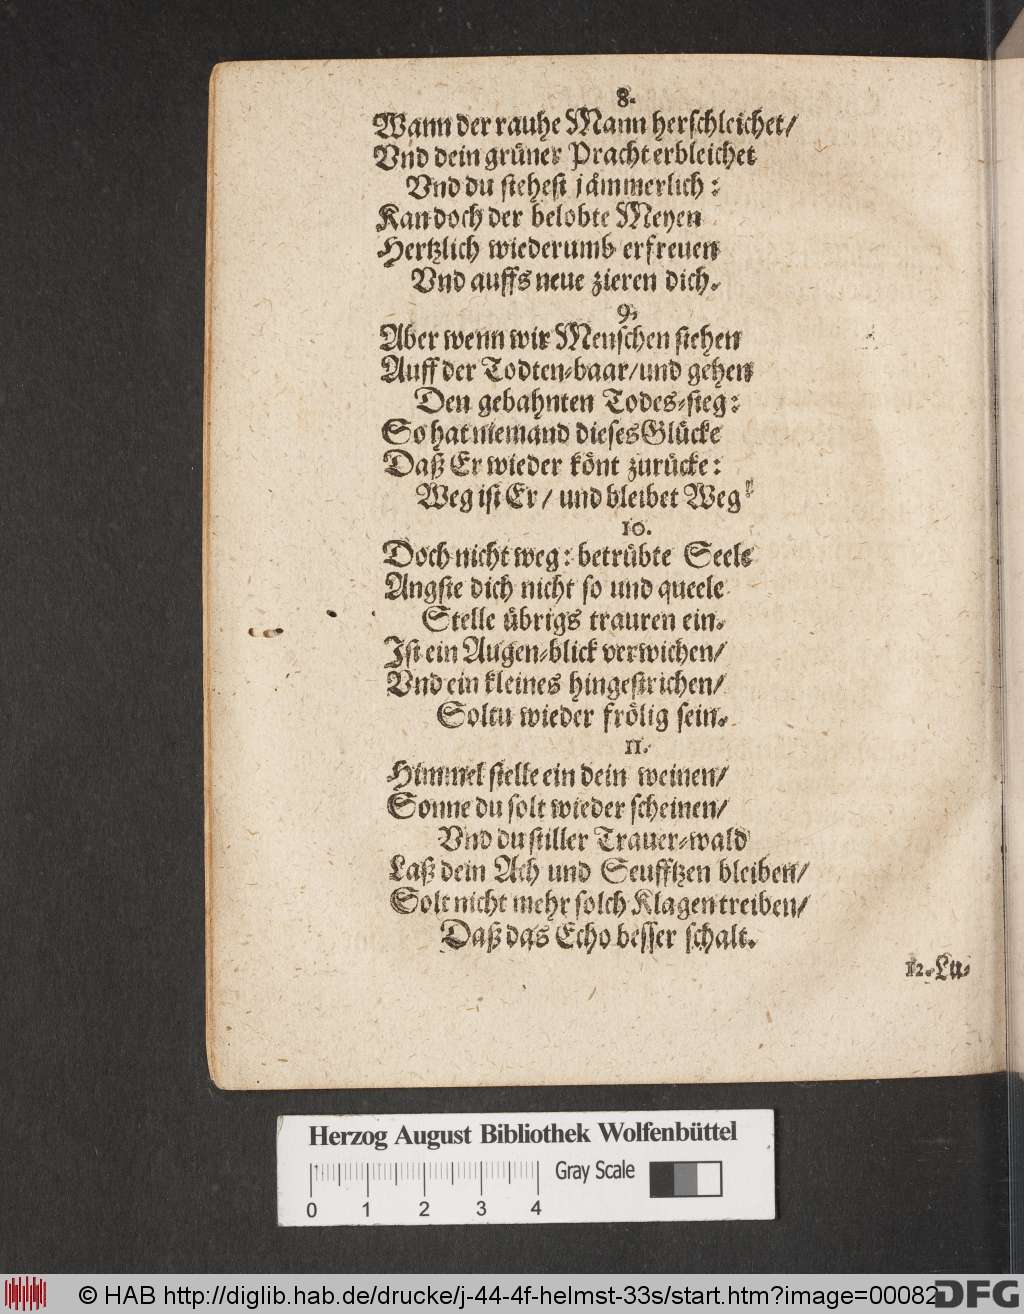 8.
Wann der rauhe Mann herschleichet/
Vnd dein grüner Pracht erbleichet
Vnd du stehest jämmerlich:
Kan doch der belobte Meyen
Hertzlich wiederumb erfreuen
Vnd auffs neue zieren dich.
9.
Aber wenn wir Menschen stehen
Auff der Todten-baar/und gehen
Den gebahnten Todes-steg:
So hat niemand dieses Glücke
Daß Er wieder könt zurücke:
Weg ist Er/ und bleibet Weg!
10.
Doch nicht weg: betrübte Seele
Angste dich nicht so und queele
Stelle übrigs trauren ein.
Ist ein Augen-blick verwichen/
Vnd ein kleines hingestrichen/
Soltu wieder frölig sein.
11.
Himmel stelle ein dein weinen/
Sonne du solt wieder scheinen/
Vnd du stiller Trauer-wald
Laß dein Ach und Seufftzen bleiben/
Solt nicht mehr solch Klagen treiben/
Daß das Echo besser schalt.
12. Lu-
Herzog August Bibliothek Wolfenbüttel
Gray Scale
0 1 2 3 4
© HAB http://diglib.hab.de/drucke/j-44-4f-helmst-33s/start.htm?image=00082
DFG